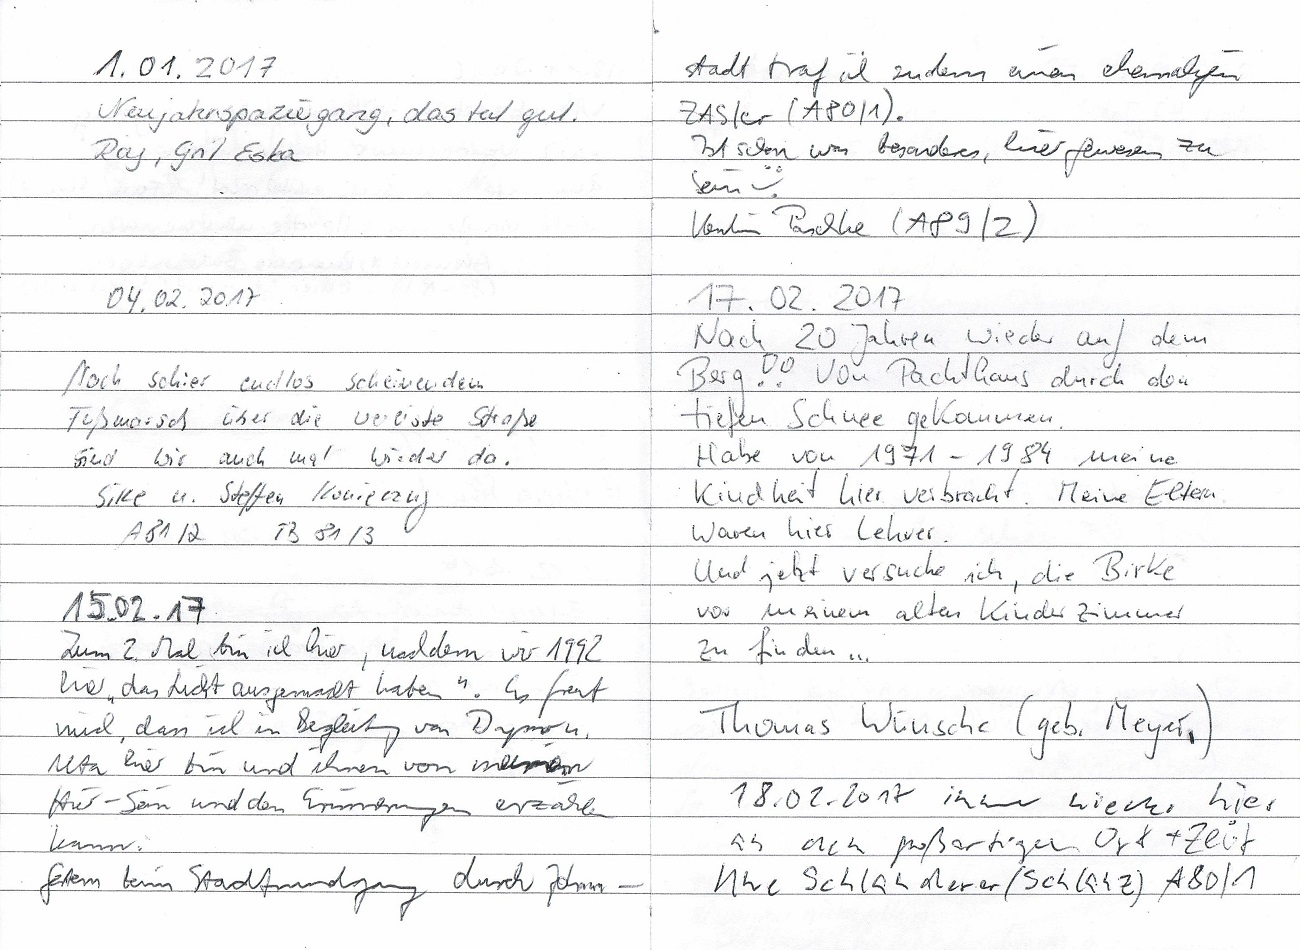 1.01.2017
Neujahrspaziergang, das tat gut.
Eska
04.02.2017
Nach schier endlos scheinendem
Fußmarsch über die vereiste Straße
sind wir auch mal wieder da.
Silke u. Steffen Konieczny
A81/2 TB 81/3
15.02.17
Zum 2. Mal bin ich hier, nachdem wir 1992
hier „das Licht ausgemacht haben“. Es freut
mich, dass ich in Begleitung von u.
Uta hier bin und ihnen von
Hier-Sein und den Erinnerungen erzählen
kann.
Gestern beim Stadtrundgang durch Johann-
stadt traf ich zudem einen ehemaligen
ZASler (A80/1).
Ist schon was besonderes, hier gewesen zu
sein
Paschke (A89/2)
17.02.2017
Nach 20 Jahren wieder auf dem
Berg!!! Von Pachthaus durch den
tiefen Schnee gekommen.
Habe von 1971-1984 meine
Kindheit hier verbracht. Meine Eltern
waren hier Lehrer.
Und jetzt versuche ich, die Birke
vor meinem alten Kinderzimmer
zu finden...
Thomas Wünsche (geb. Meyer)
18.02.2017 immer wieder hier
an dem großartigen Ort + Zeit
Uwe Schlanderer/(Schlanz) A80/1